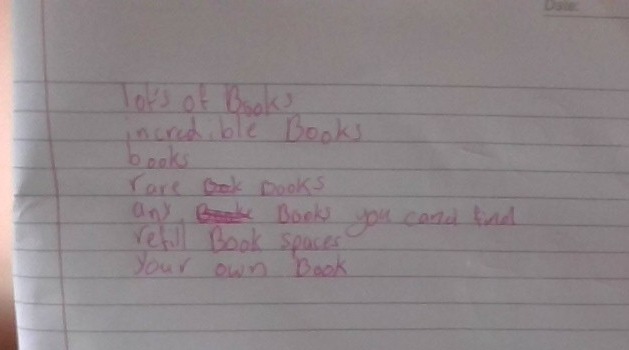 Date:
lot's of Books
incredible Books
books
rare Books
any Books you cand find
refill Book spaces
your own Book